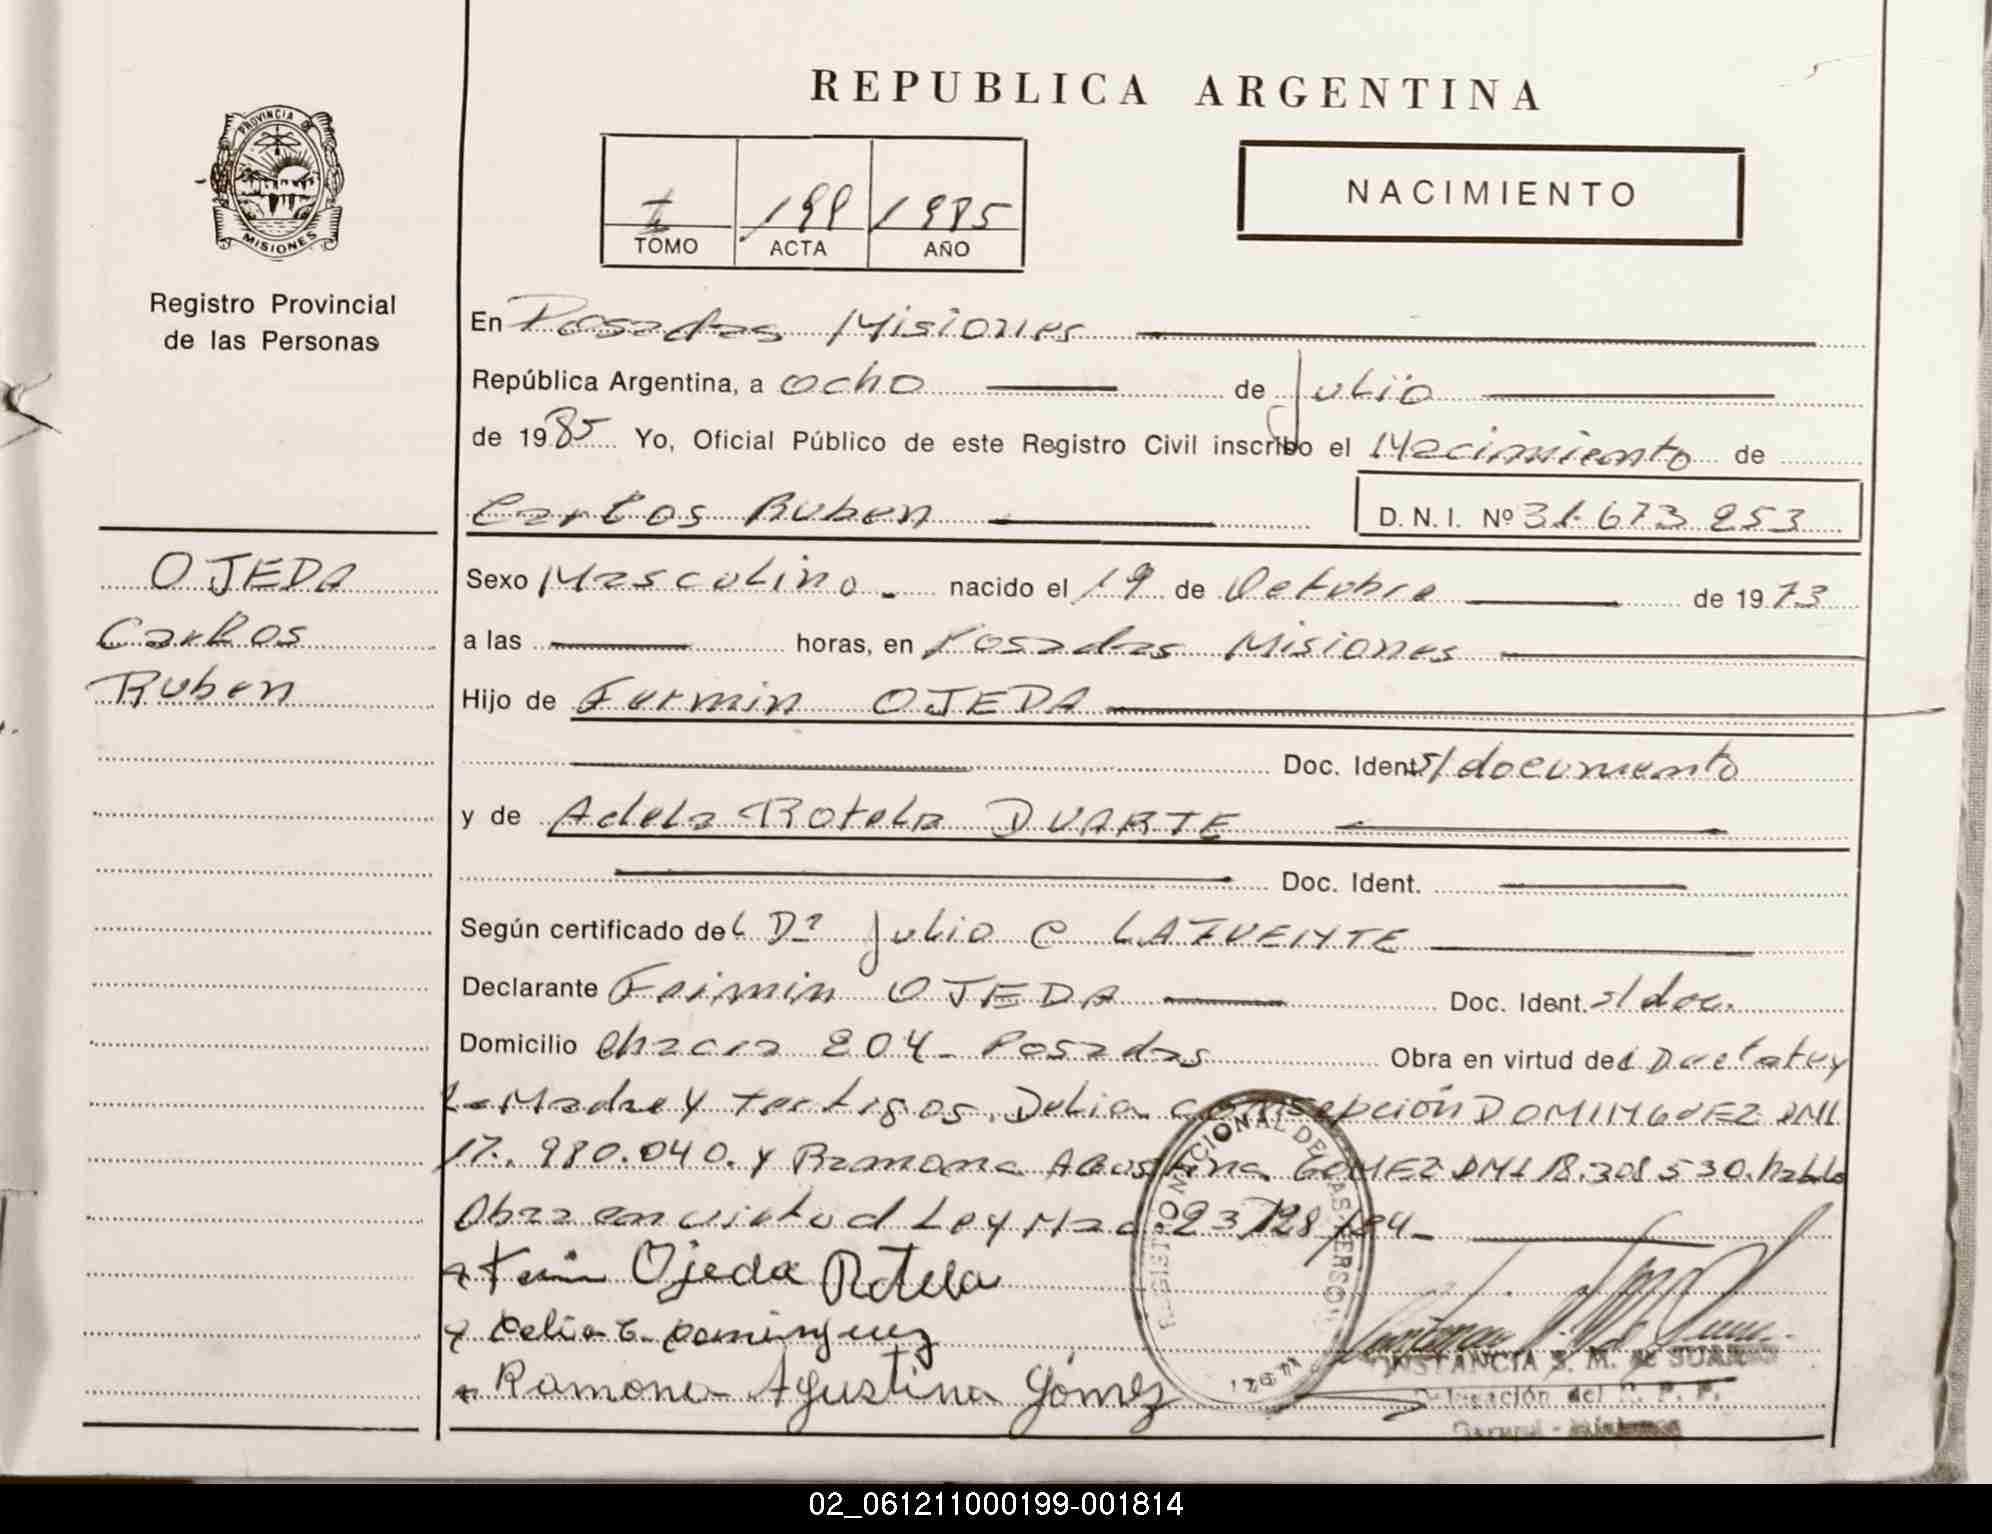 REPUBLICA ARGENTINA
PROVINCIA DE
MISIONES
Registro Provincial
de las Personas
I 199 1985
TOMO ACTA AÑO
NACIMIENTO
En Posadas Misiones
República Argentina, a ocho de Julio
de 1985 Yo, Oficial Público de este Registro Civil inscribo el Nacimiento de
Carlos Ruben D. N. I. Nº 31.673 253
OJEDA
Carlos
Ruben
Sexo Masculino. nacido el 19 de Octubre de 1973
a las horas, en Posadas Misiones
Hijo de Fermin OJEDA
Doc. Ident. s/documento
y de Adela Rotela DUARTE
Doc. Ident.
Según certificado del Dr Julio C LAFUENTE
Declarante Fermin OJEDA Doc. Ident. s/doc.
Domicilio Chacra 204 - Posadas Obra en virtud del
la Madre y testigos. Delia Consepción DOMINGUEZ DNI
17.980.040. y Ramona Agustina GOMEZ DNI 18.308.530. hable
Obra en virtud Ley Nac. 23128/84-
Ojeda Rotela
Delia C. Dominguez
Ramona Agustina Gómez
REGISTRO NACIONAL DE LAS PERSONAS
CONSTANCIA S. M. de SUAREZ
Delegación del R. P. P.
02_061211000199-001814